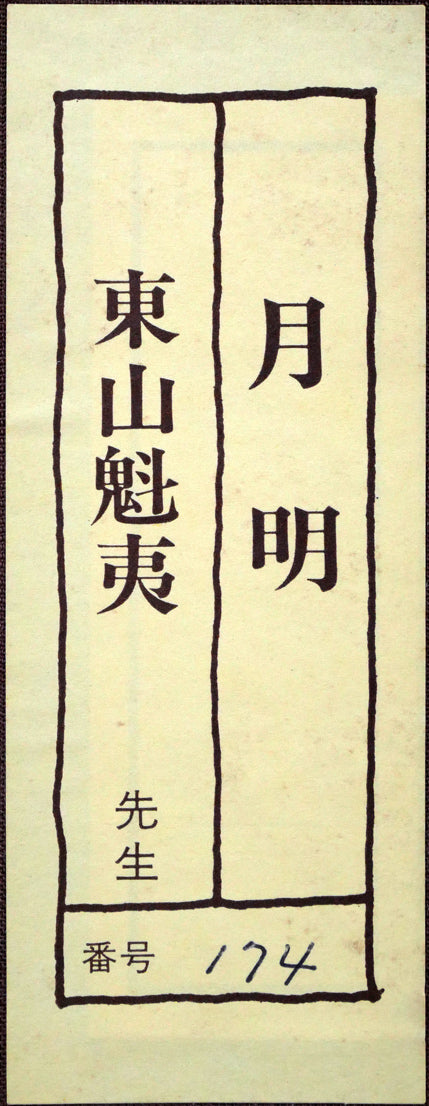 月明
東山魁夷
先生
番号 174